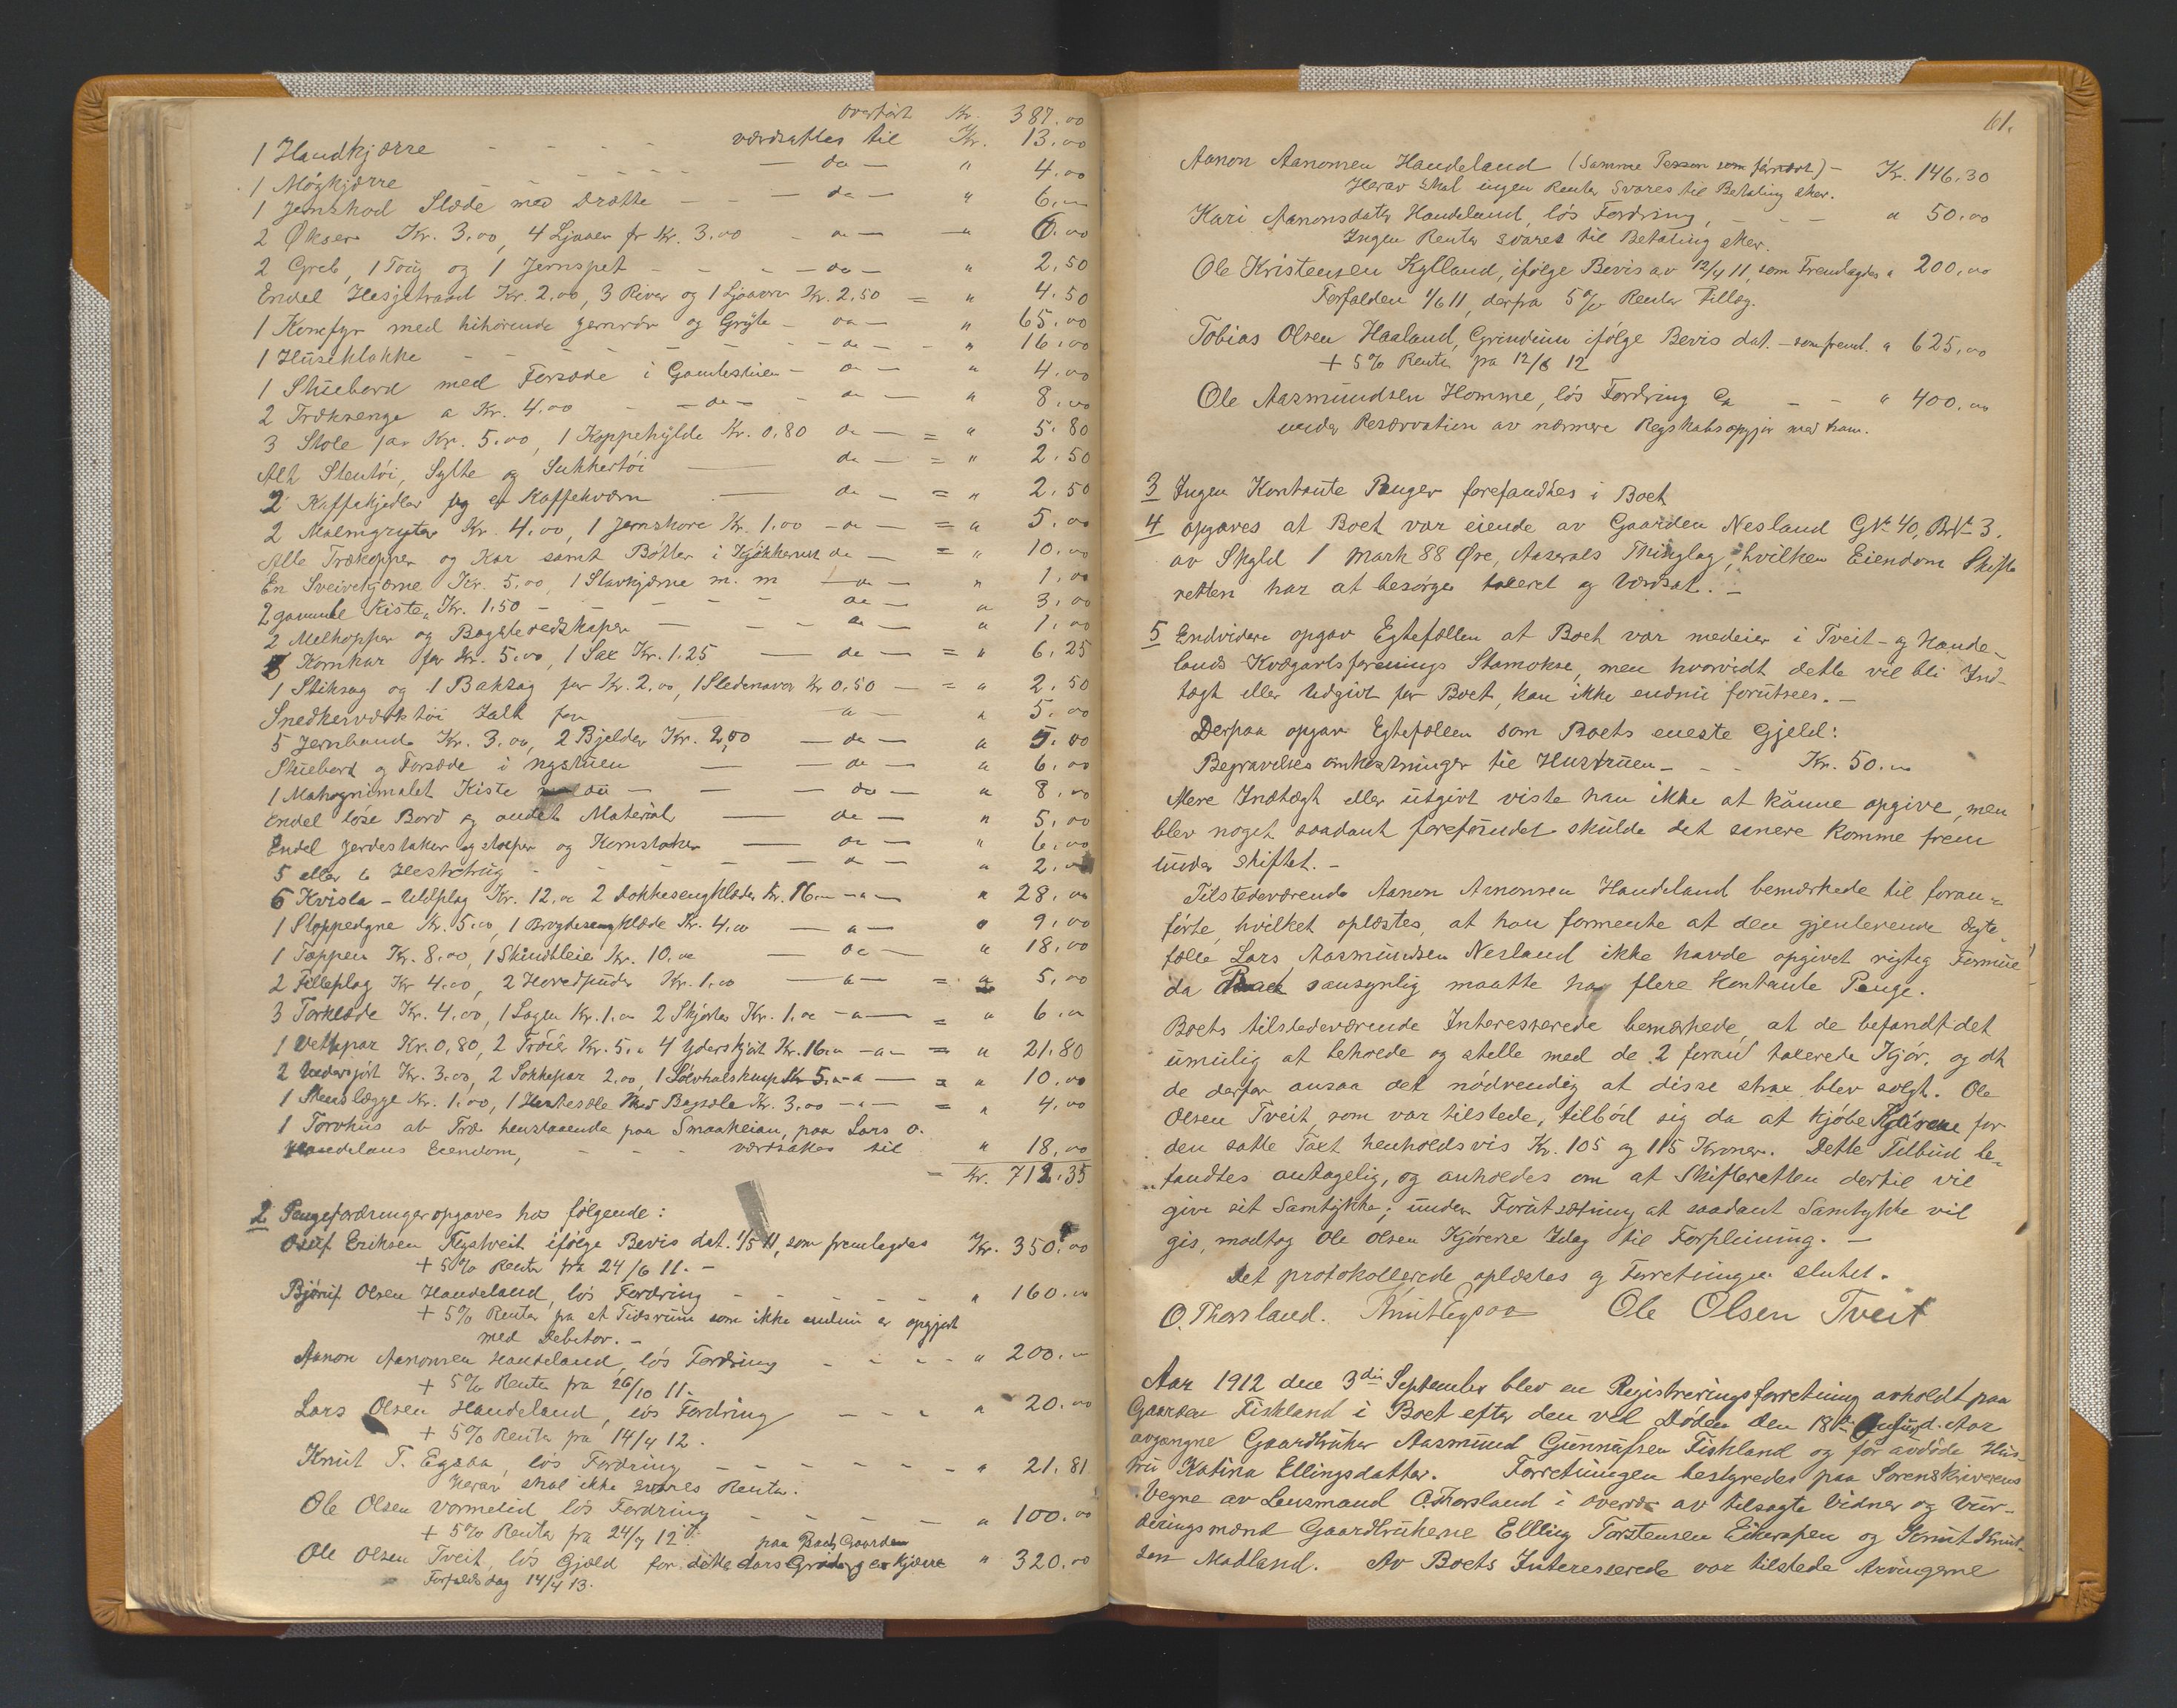 overført Kr. 387.00
1 Handkjærre - - - - værdsattes til Kr. 13.00
1 Møgkjærre - - - - - — do — " 4.00
1 Jernskod Slæde med Drætte - - — do — " 6.00
2 Økser Kr. 3.00, 4 Ljaaer for Kr. 3.00 - a — " 6.00
2 Greb, 1 Torig og 1 Jernspet - - - — do — " 2.50
Endel Hesjetraad Kr. 2.00, 3 River og 1 Ljaaorv Kr. 2.50 = " 4.50
1 Komfyr med tilhørende Jernrør og Gryte - do — " 65.00
1 Huseklokke - - - - - - do — " 16.00
1 Stuebord med Forsæde i Gamlestuen - do — " 4.00
2 Træksenge a Kr. 4.00 - — do — - do — " 8.00
3 Stole for Kr. 5.00, 1 Koppehylde Kr. 0.80 do — = " 5.80
Alt Stentøi, Sylte og Sukkertøi — do — = " 2.50
2 Kaffekjedler og en Kaffekværn — do — = " 2.50
2 Malmgryter Kr. 4.00, 1 Jernskore Kr. 1.00 - do — = " 5.00
Alle Trækopper og Kar samt Bøtter i Kjøkkenet do — = " 10.00
En Sveivekjærne Kr. 5.00, 1 Stavkjærne m. m — do — " 1.00
2 gammel Kiste, Kr. 1.50 - - - - - do — " 3.00
2 Melkopper og Bagsteredskaper — - - - do — " 1.00
Kornkar for Kr. 5.00, 1 Sax Kr. 1.25 — do — = " 6.25
1 Stiksag og 1 Baksag for Kr. 2.00, 1 Sledenaver Kr 0.50 — = " 2.50
Snedkerværktøi Ialt for — a — " 5.00
5 Jernbaand Kr. 3.00, 2 Bjelder Kr. 2,00 — do — " 5.00
Stuebord og Forsæde i Nystuen — — do — " 6.00
1 Mahognimalet Kiste do — - — do — " 8.00
Endel løse Bord og andet Material — do — " 5.00
Endel Jerdestaker og stolper og Kornstaker — do — " 6.00
5 eller 6 Hestetrug - - - - — do — " 2.00
6 Kvisla - Uldplag Kr. 12.00 2 Dokkesengklæder Kr. 16.00 — a — " 28.00
1 Stoppedyne Kr. 5.00, 1 Brogdesengklæde Kr. 4.00 — a — " 9.00
1 Tæppen Kr. 8.00, 1 Skindbleie Kr. 10.00 — do — " 18.00
2 Filleplag Kr 4.00, 2 Hovedpuder Kr. 1.00 — a — = " 5.00
3 Torklæde Kr. 4.00, 1 Lagen Kr. 1.00 2 Skjorter Kr. 1.00 — a — = " 6.00
1 Vettepar Kr. 0,80, 2 Trøier Kr. 5.00 4 Yderskjørt Kr. 16.00 — a — = " 21.80
2 Underskjørt Kr. 3.00, 2 Sokkepar 2.00, 1 Sølvhalsknap Kr 5.00 — a — = " 10.00
1 Stenslægge Kr. 1.00, 1 Hestesæle med Bogsæle Kr. 3.00 — a — = " 4.00
1 Torvhus af Træ henstaaende paa Smaaheian, paa Lars O.
Haandelands Eiendom, - - - værdsættes til " 18.00
= Kr. 712.35
2 Pengefordringer opgaves hos følgende:
Osuf Eriksen Fegstveit ifølge Bevis dat. 1/5 11, som fremlagdes Kr. 350.00
+ 5% Renter fra 24/6 11. -
Bjørnuf Olsen Haandeland, løs Fordring - - - - - " 160.00
+ 5% Renter fra et Tidsrum som ikke endnu er opgjort
med Debitor. -
Aanon Aanonsen Haandeland, løs Fordring - - - - " 200.00
+ 5% Renter fra 26/10 11.
Lars Olsen Haandeland, løs Fordring - - - " 20.00
+ 5% Renter fra 14/4 12.
Knut T. Egsaa, løs Fordring - - - - - - " 21.81
Herav skal ikke svares Renter.
Ole Olsen Vormelid løs Fordring - - - - " 100.00
+ 5% Renter fra 24/4 12.
paa Boets Gaarden
Ole Olsen Tveit, løs Gjæld for dette Aars Grøde og en Kjærre " 320.00
Forfaldsdag 14/4 13.
61.
Aanon Aanonsen Haandeland (Samme Person som før nævnt) - Kr. 146.30
Herav skal ingen Renter svares til Betaling sker.
Kari Aanonsdatter Haandeland, løs Fordring, - - - " 50.00
Ingen Renter svares til Betaling sker.
Ole Kristensen Kylland, ifølge Bevis av 12/4 11, som Fremlagdes " 200.00
Forfalden 1/6 11, derfra 5% Renter Tillæg.
Tobias Olsen Haaland, Grindum ifølge Bevis dat. - som freml. " 625,00
+ 5% Renter fra 12/6 12
Ole Aasmundsen Homme, løs Fordring Ca - - " 400.00
under Reservation av nærmere Regnskabsopgjør med ham.
3 Ingen Kontante Penger forefandtes i Boet
4 opgaves at Boet var eiende av Gaarden Nesland GNr. 40, BNr. 3.
av Skyld 1 Mark 88 Øre, Aaserals Thinglag, hvilken Eiendom Skifte
retten har at besørge taxeret og Værdsat. -
5 Endvidere opgav Egtefællen at Boet var medeier i Tveit - og Haande-
lands Kvægavlsforenings Stamokse, men hvorvidt dette vil bli Ind-
tægt eller Udgivt for Boet, kan ikke endnu forutsees. -
Derpaa opgav Egtefællen som Boets eneste Gjeld:
Begravelses omkostninger til Hustruen - - - Kr. 50.00
Mere Indtægt eller utgivt viste han ikke at kunne opgive, men
blev noget saadant forefundet skulde det senere komme frem
under Skiftet. -
Tilstedeværende Aanon Aanonsen Haandeland bemærkede til foran-
førte, hvilket oplæstes, at han formente at den gjenlevende Egte-
fælle Lars Aasmundsen Nesland ikke havde opgivet rigtig Formue
da Boet sansynlig maatte ha flere Kontante Penge.
Boets tilstedeværende Interesserede bemærkede, at de befandt det
umulig at beholde og stelle med de 2 foran taxerede Kjør, og at
de derfor ansaa det nødvendig at disse strax blev solgt. Ole
Olsen Tveit, som var tilstede, tilbød sig da at kjøbe Kjørene for
den satte Taxt henholdsvis Kr. 105 og 115 Kroner. Dette Tilbud be-
fandtes antagelig, og anholdes om at Skifteretten dertil vil
give sit Samtykke; under Forutsætning at saadant Samtykke vil
gis, modtog Ole Olsen Kjørene Idag til Forpleining. -
Det protokollerede oplæstes og Forretningen sluttet.
O. Thorsland. Knut Egsaa Ole Olsen Tveit
Aar 1912 den 3die September blev en Registreringsforretning avholdt paa
Gaarden Fiskland i Boet efter den ved Døden den 18de d. Aar
avgangne Gaardbruker Aasmund Gunnufsen Fiskland og før avdøde Hus-
tru Katina Ellingsdatter. Forretningen bestyredes paa Sorenskriverens
Vegne av Lensmand O. Thorsland i overvær av tilsagte Vidner og Vur-
deringsmænd Gaardbrukerne Ellling Torstensen Eikerapen og Knut Knut-
sen Madland. Av Boets Interesserede var tilstede Arvingerne